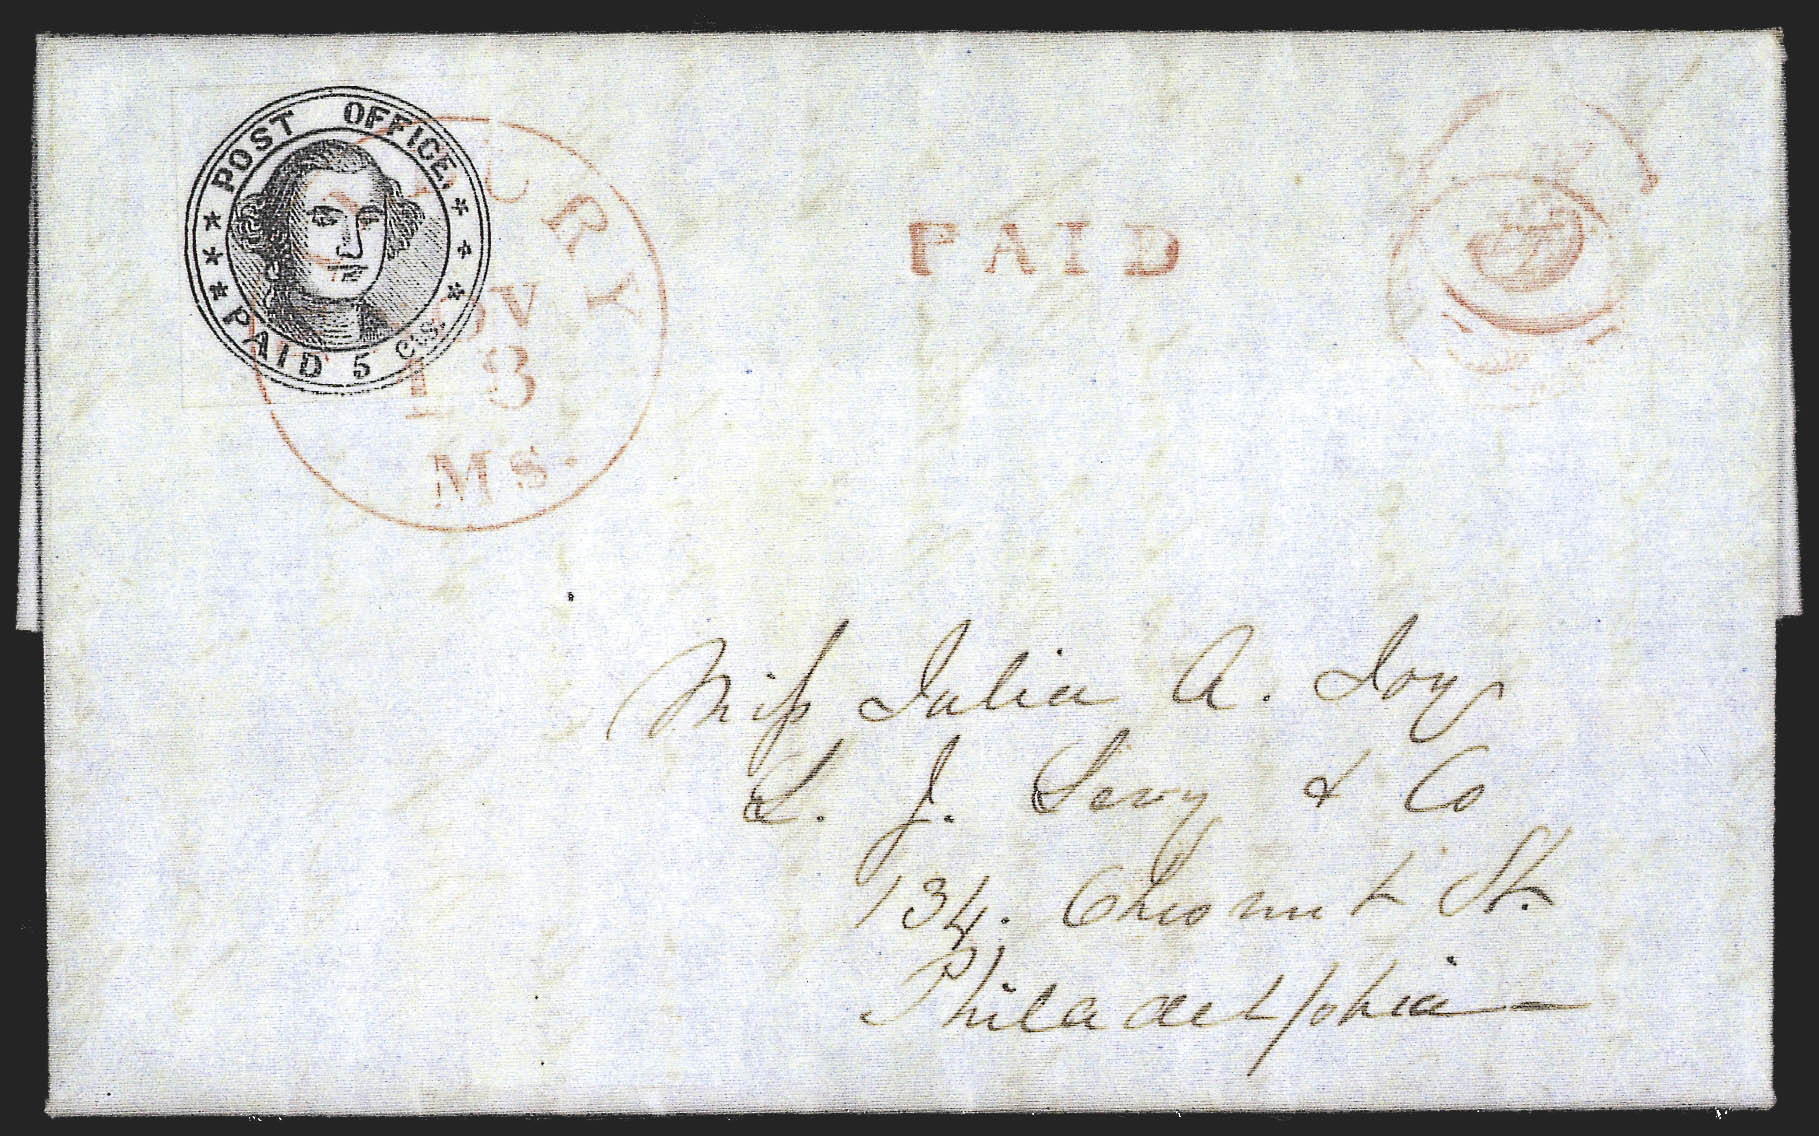 POST OFFICE.
PAID 5 cts.
URY
OV
18
Ms.
PAID
Miss Julia A. Joy
L. J. Levy & Co
134. Chesnut St.
Philadelphia